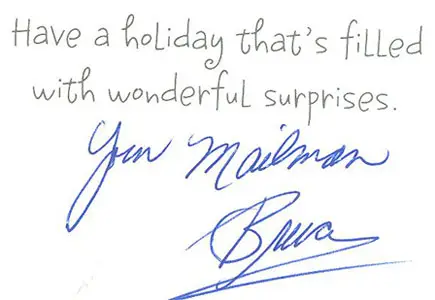 Have a holiday that's filled
with wonderful surprises.
Your Mailman